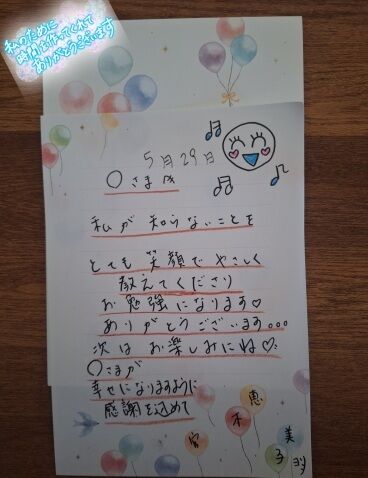 私のために
時間を作ってくれて
ありがとうございます
5月29日
○さま
私が知らないことを
とても笑顔でやさしく
教えてくださり
お勉強になります♡
ありがとうございます...
次はお楽しみにね♡
○さまが
幸せになりますように
感謝を込めて